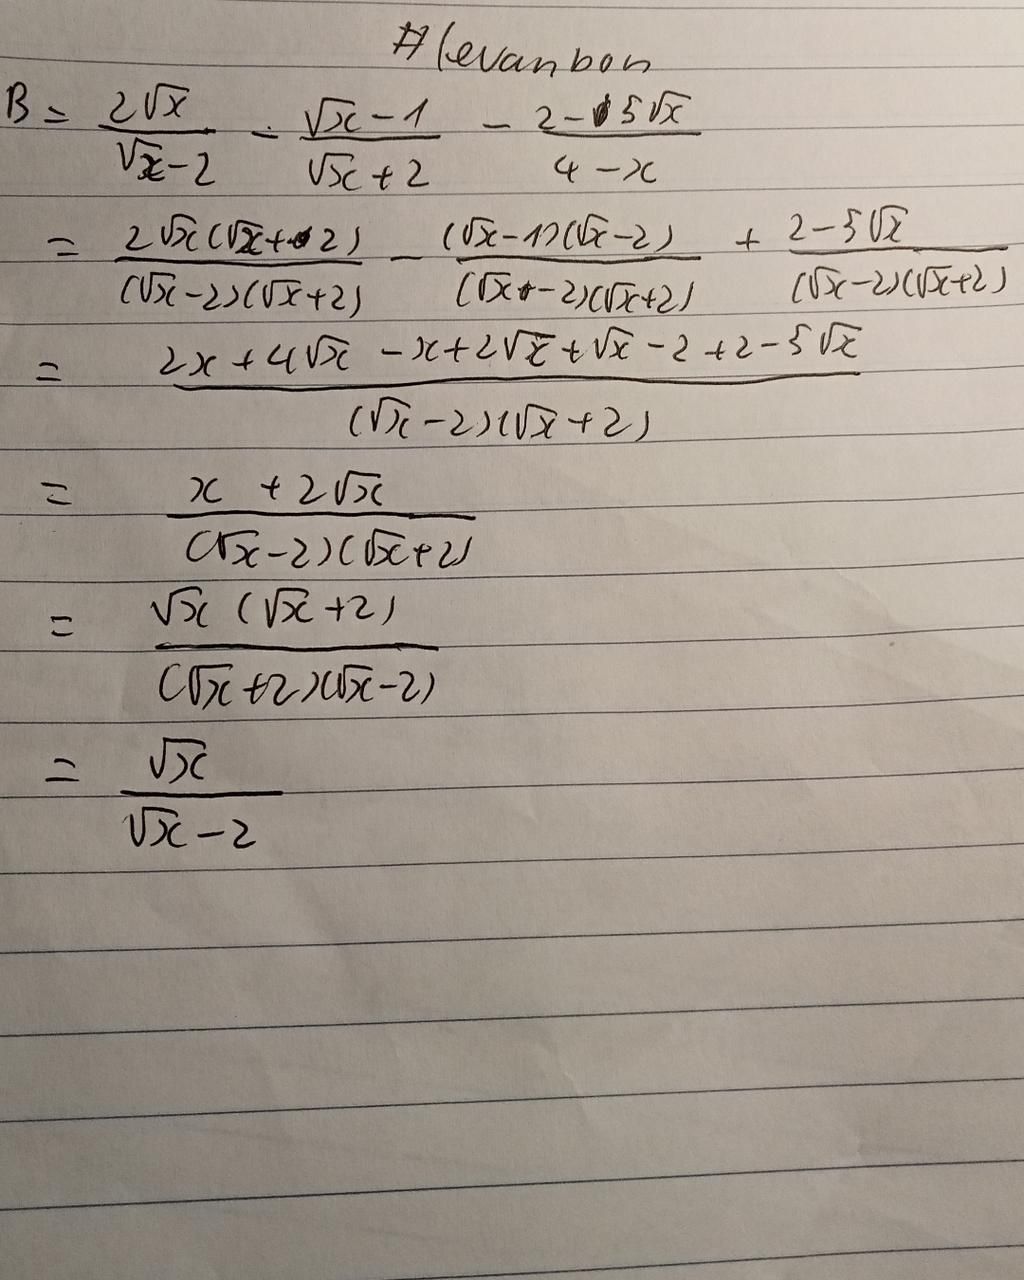 #levanbon
B = 2√x / (√x - 2) - (√x - 1) / (√x + 2) - (2 - 5√x) / (4 - x)
= 2√x(√x + 2) / (√x - 2)(√x + 2) - (√x - 1)(√x - 2) / (√x - 2)(√x + 2) + (2 - 5√x) / (√x - 2)(√x + 2)
= (2x + 4√x - x + 2√x + √x - 2 + 2 - 5√x) / (√x - 2)(√x + 2)
= (x + 2√x) / (√x - 2)(√x + 2)
= √x(√x + 2) / (√x + 2)(√x - 2)
= √x / (√x - 2)